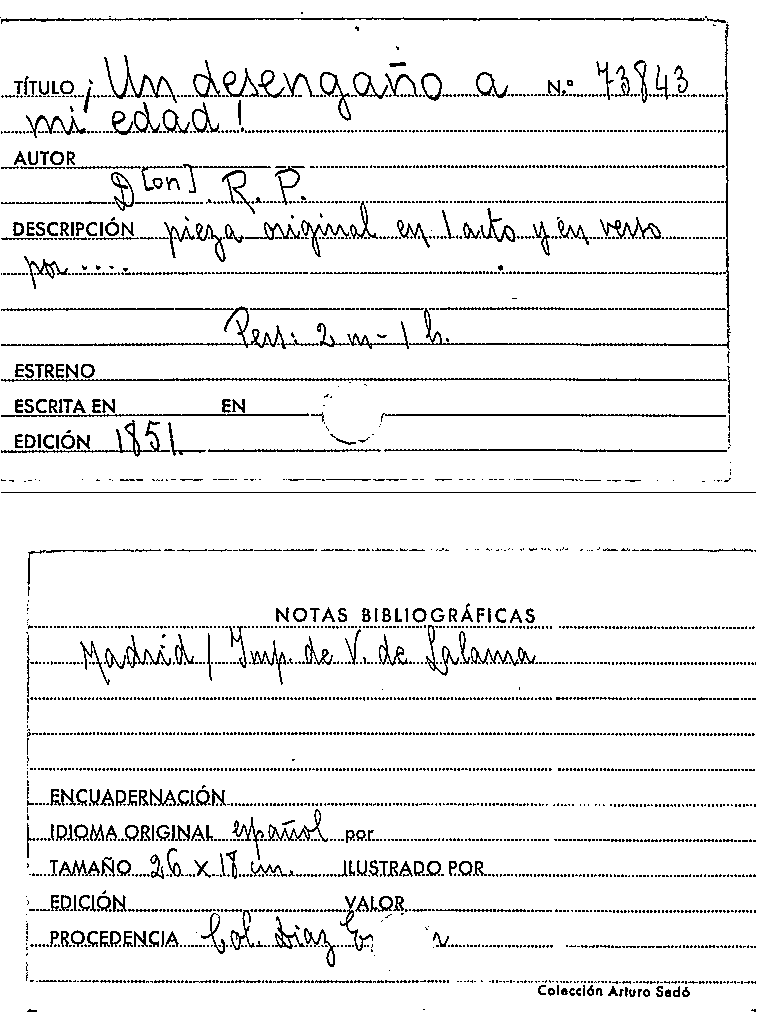 TÍTULO ¡Un desengaño a N.º 73843
mi edad!
AUTOR
D[on]. R. P.
DESCRIPCIÓN pieza original en 1 acto y en verso
por ....
Pers: 2 m - 1 h.
ESTRENO
ESCRITA EN EN
EDICIÓN 1851.
NOTAS BIBLIOGRÁFICAS
Madrid / Imp. de V. de Lalama
ENCUADERNACIÓN
IDIOMA ORIGINAL español por
TAMAÑO 26 x 18 cm. ILUSTRADO POR
EDICIÓN VALOR
PROCEDENCIA Col. Diaz
Colección Arturo Sedó